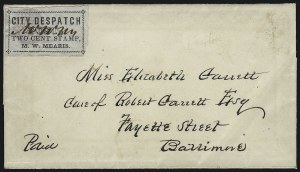 CITY DESPATCH
TWO CENT STAMP,
M. W. MEARIS.
Miss Elizabeth Garrett
Care of Robert Garrett Esq
Fayette Street
Baltimore
Paid